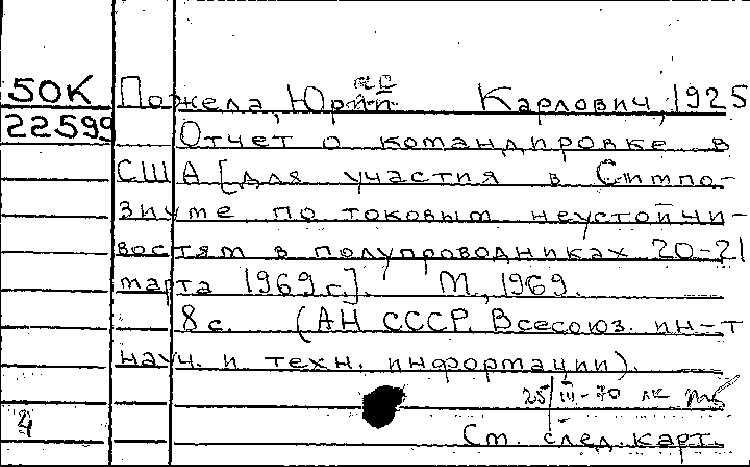 50К Пожела, Юрий Карлович, 1925
22599 Отчет о командировке в
США [для участия в Симпо-
зиуме по токовым неустойчи-
востям в полупроводниках 20-21
марта 1969г.]. М., 1969.
8 с. (АН СССР. Всесоюз. ин-т
науч. и техн. информации).
25/III-70
4
См. след. карт.